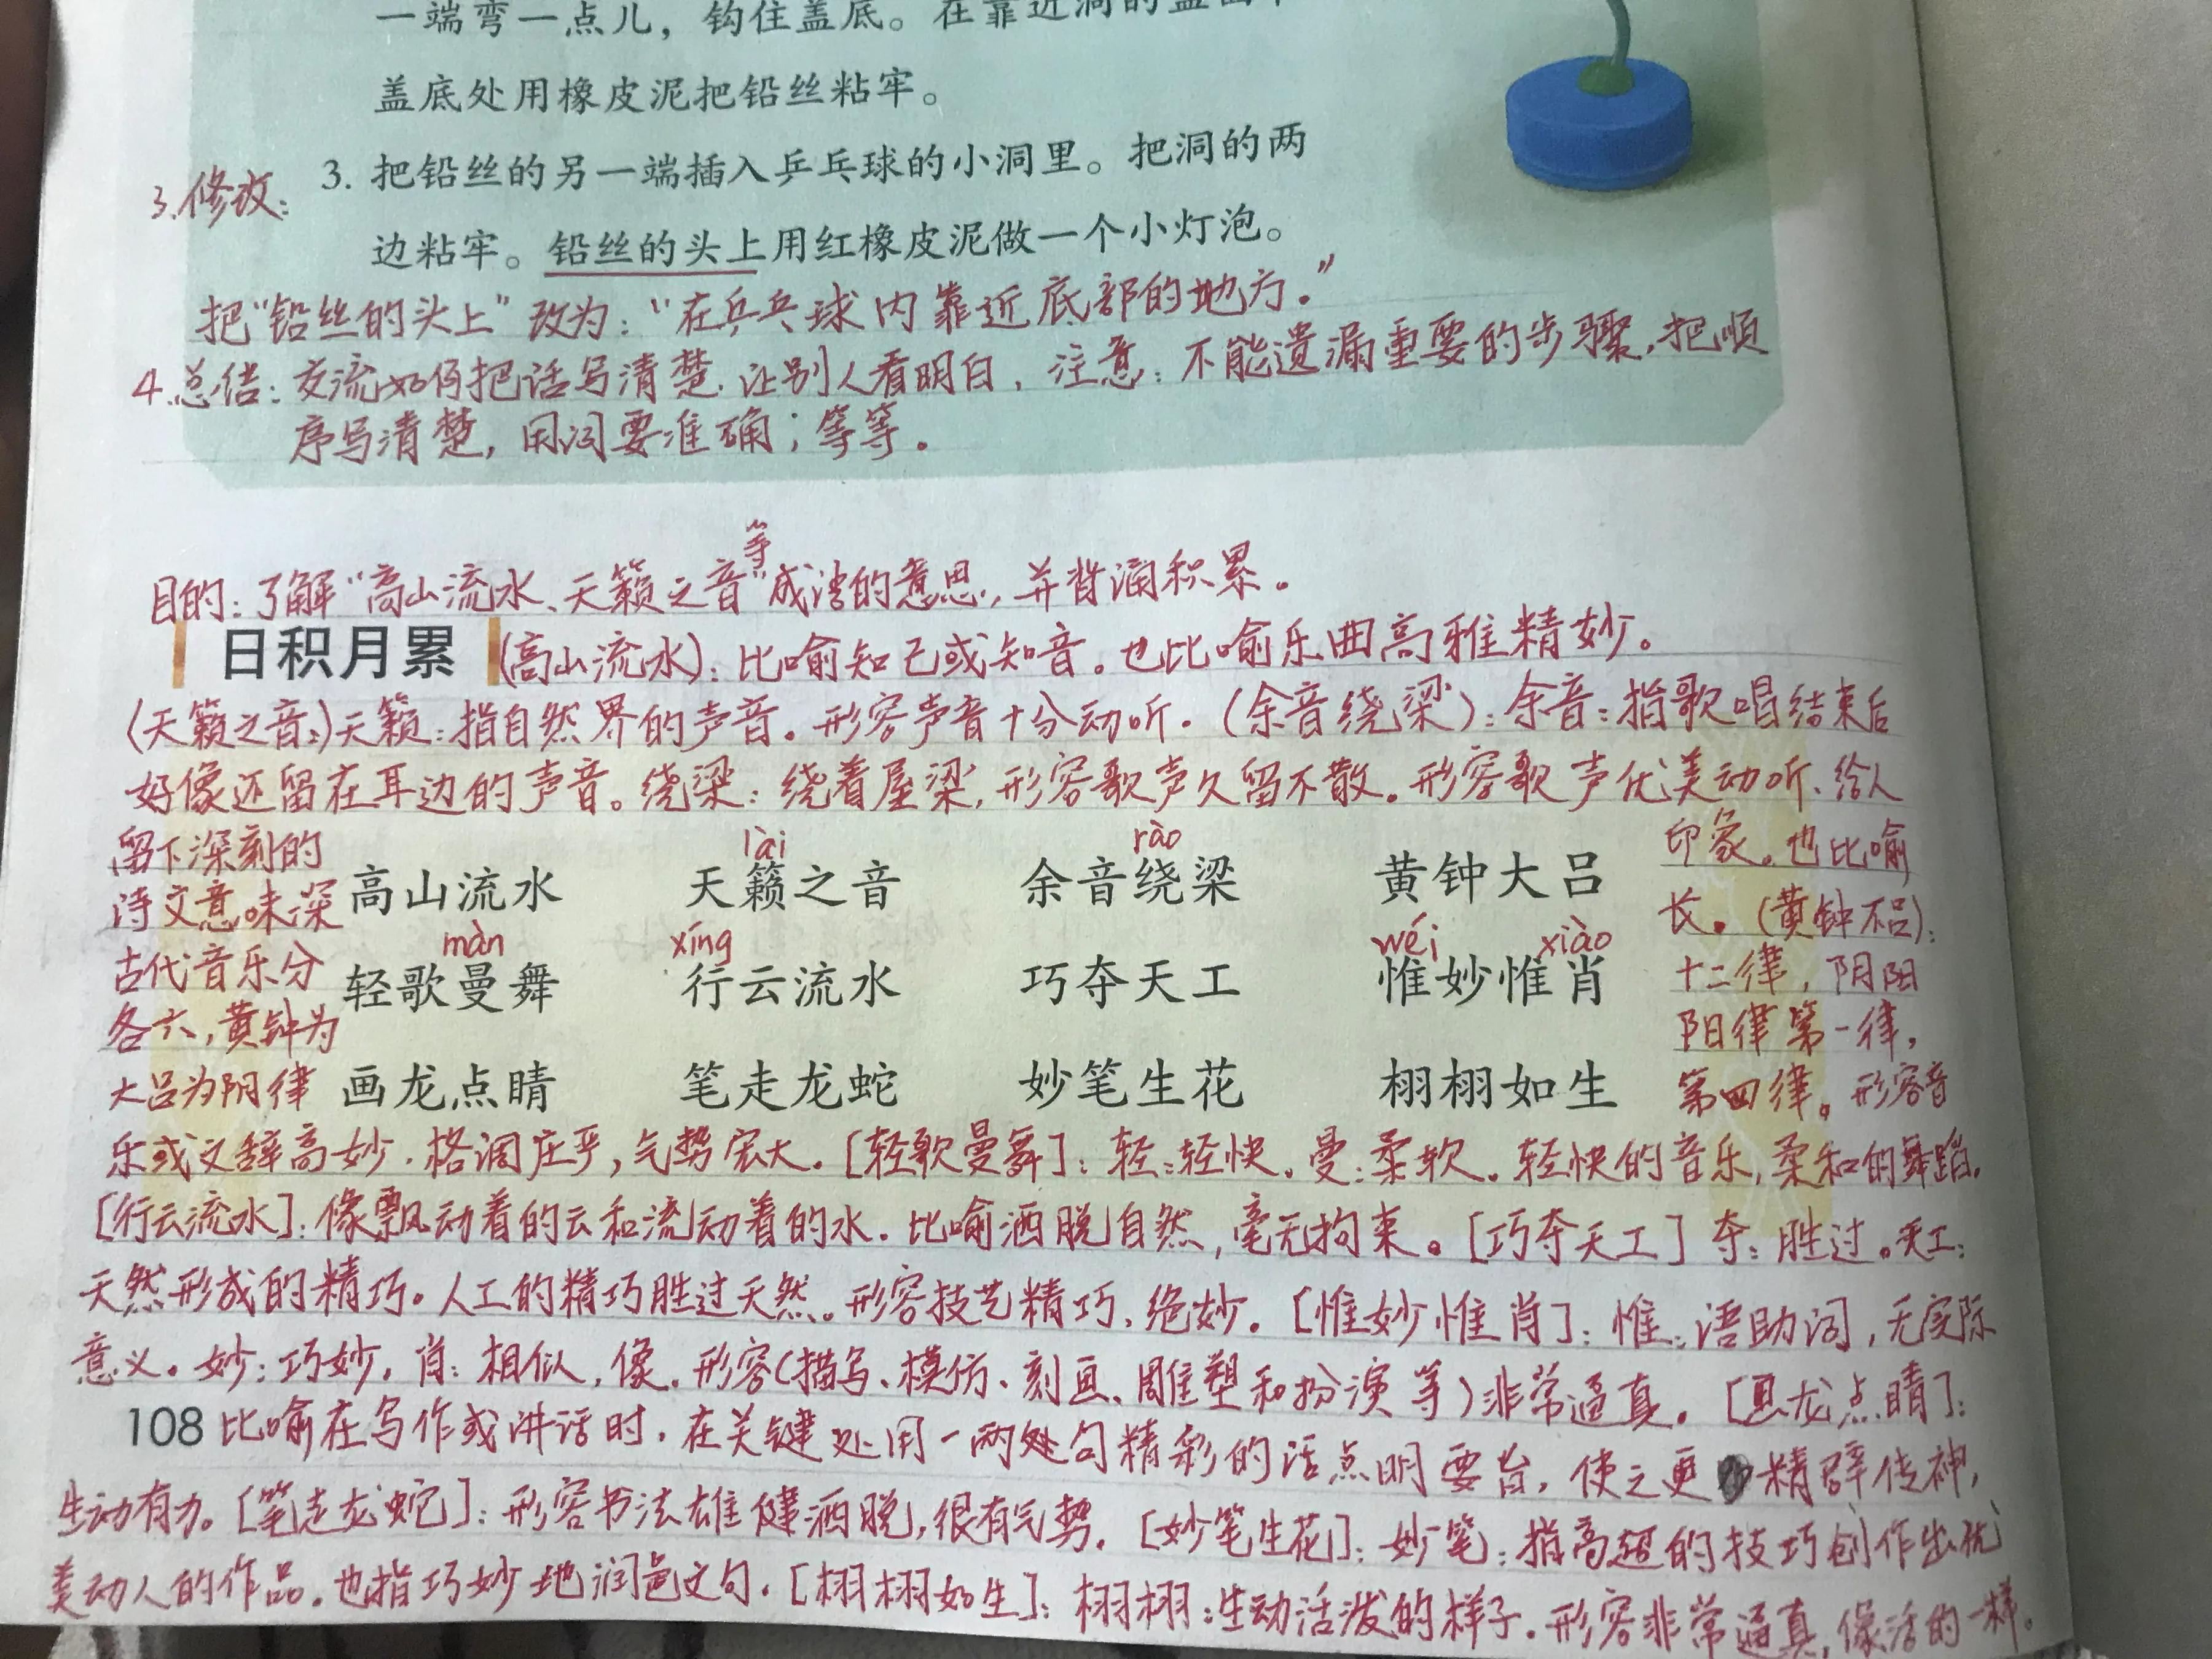 一端弯一点儿，钩住盖底。在靠近洞的盖
盖底处用橡皮泥把铅丝粘牢。
3.修改：
3. 把铅丝的另一端插入乒乓球的小洞里。把洞的两
边粘牢。铅丝的头上用红橡皮泥做一个小灯泡。
把“铅丝的头上”改为：“在乒乓球内靠近底部的地方。”
4.总结：交流如何把话写清楚，让别人看明白，注意：不能遗漏重要的步骤，把顺
序写清楚，用词要准确；等等。
等
目的：了解“高山流水、天籁之音”成语的意思，并背诵积累。
日积月累
(高山流水)：比喻知己或知音。也比喻乐曲高雅精妙。
(天籁之音：)天籁：指自然界的声音。形容声音十分动听。(余音绕梁)：余音：指歌唱结束后
好像还留在耳边的声音。绕梁：绕着屋梁，形容歌声久留不散。形容歌声优美动听、给人
留下深刻的 印象。也比喻
lài rào
高山流水 天籁之音 余音绕梁 黄钟大吕
诗文意味深 长。(黄钟大吕)：
màn xíng wéi xiào
古代音乐分 十二律，阴阳
轻歌曼舞 行云流水 巧夺天工 惟妙惟肖
各六，黄钟为 阳律第一律，
大吕为阴律 第四律。形容音
画龙点睛 笔走龙蛇 妙笔生花 栩栩如生
乐或文辞高妙、格调庄严，气势宏大。[轻歌曼舞]：轻：轻快。曼：柔软。轻快的音乐，柔和的舞蹈。
[行云流水]：像飘动着的云和流动着的水。比喻洒脱自然，毫无拘束。[巧夺天工]夺：胜过。天工：
天然形成的精巧。人工的精巧胜过天然。形容技艺精巧、绝妙。[惟妙惟肖]：惟：语助词，无实际
意义。妙：巧妙。肖：相似，像。形容(描写、模仿、刻画、雕塑和扮演等)非常逼真。[画龙点睛]：
108 比喻在写作或讲话时，在关键处用一两处句精彩的话点明要旨，使之更精辟传神，
生动有力。[笔走龙蛇]：形容书法雄健洒脱，很有气势。[妙笔生花]：妙笔：指高超的技巧创作出优
美动人的作品。也指巧妙地润色文句。[栩栩如生]：栩栩：生动活泼的样子。形容非常逼真，像活的一样。